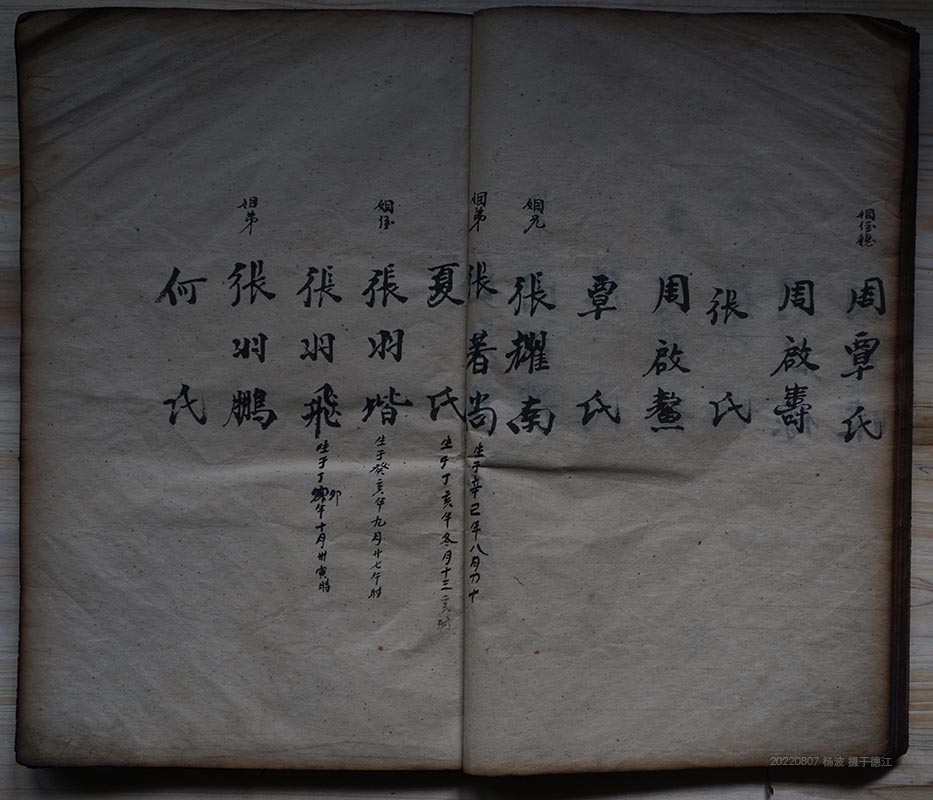 姻侄媳
周覃氏
周啟壽
張氏
周啟鰲
覃氏
姻兄
張耀南
姻弟
張著尚
生于辛巳年八月初十
夏氏
生于丁亥年冬月十三亥時
姻侄
張羽堦
生于癸亥年九月廿七午時
張羽飛
生于丁卯年十月卅寅時
姻弟
張羽鵬
何氏
20220807 杨波 摄于德江